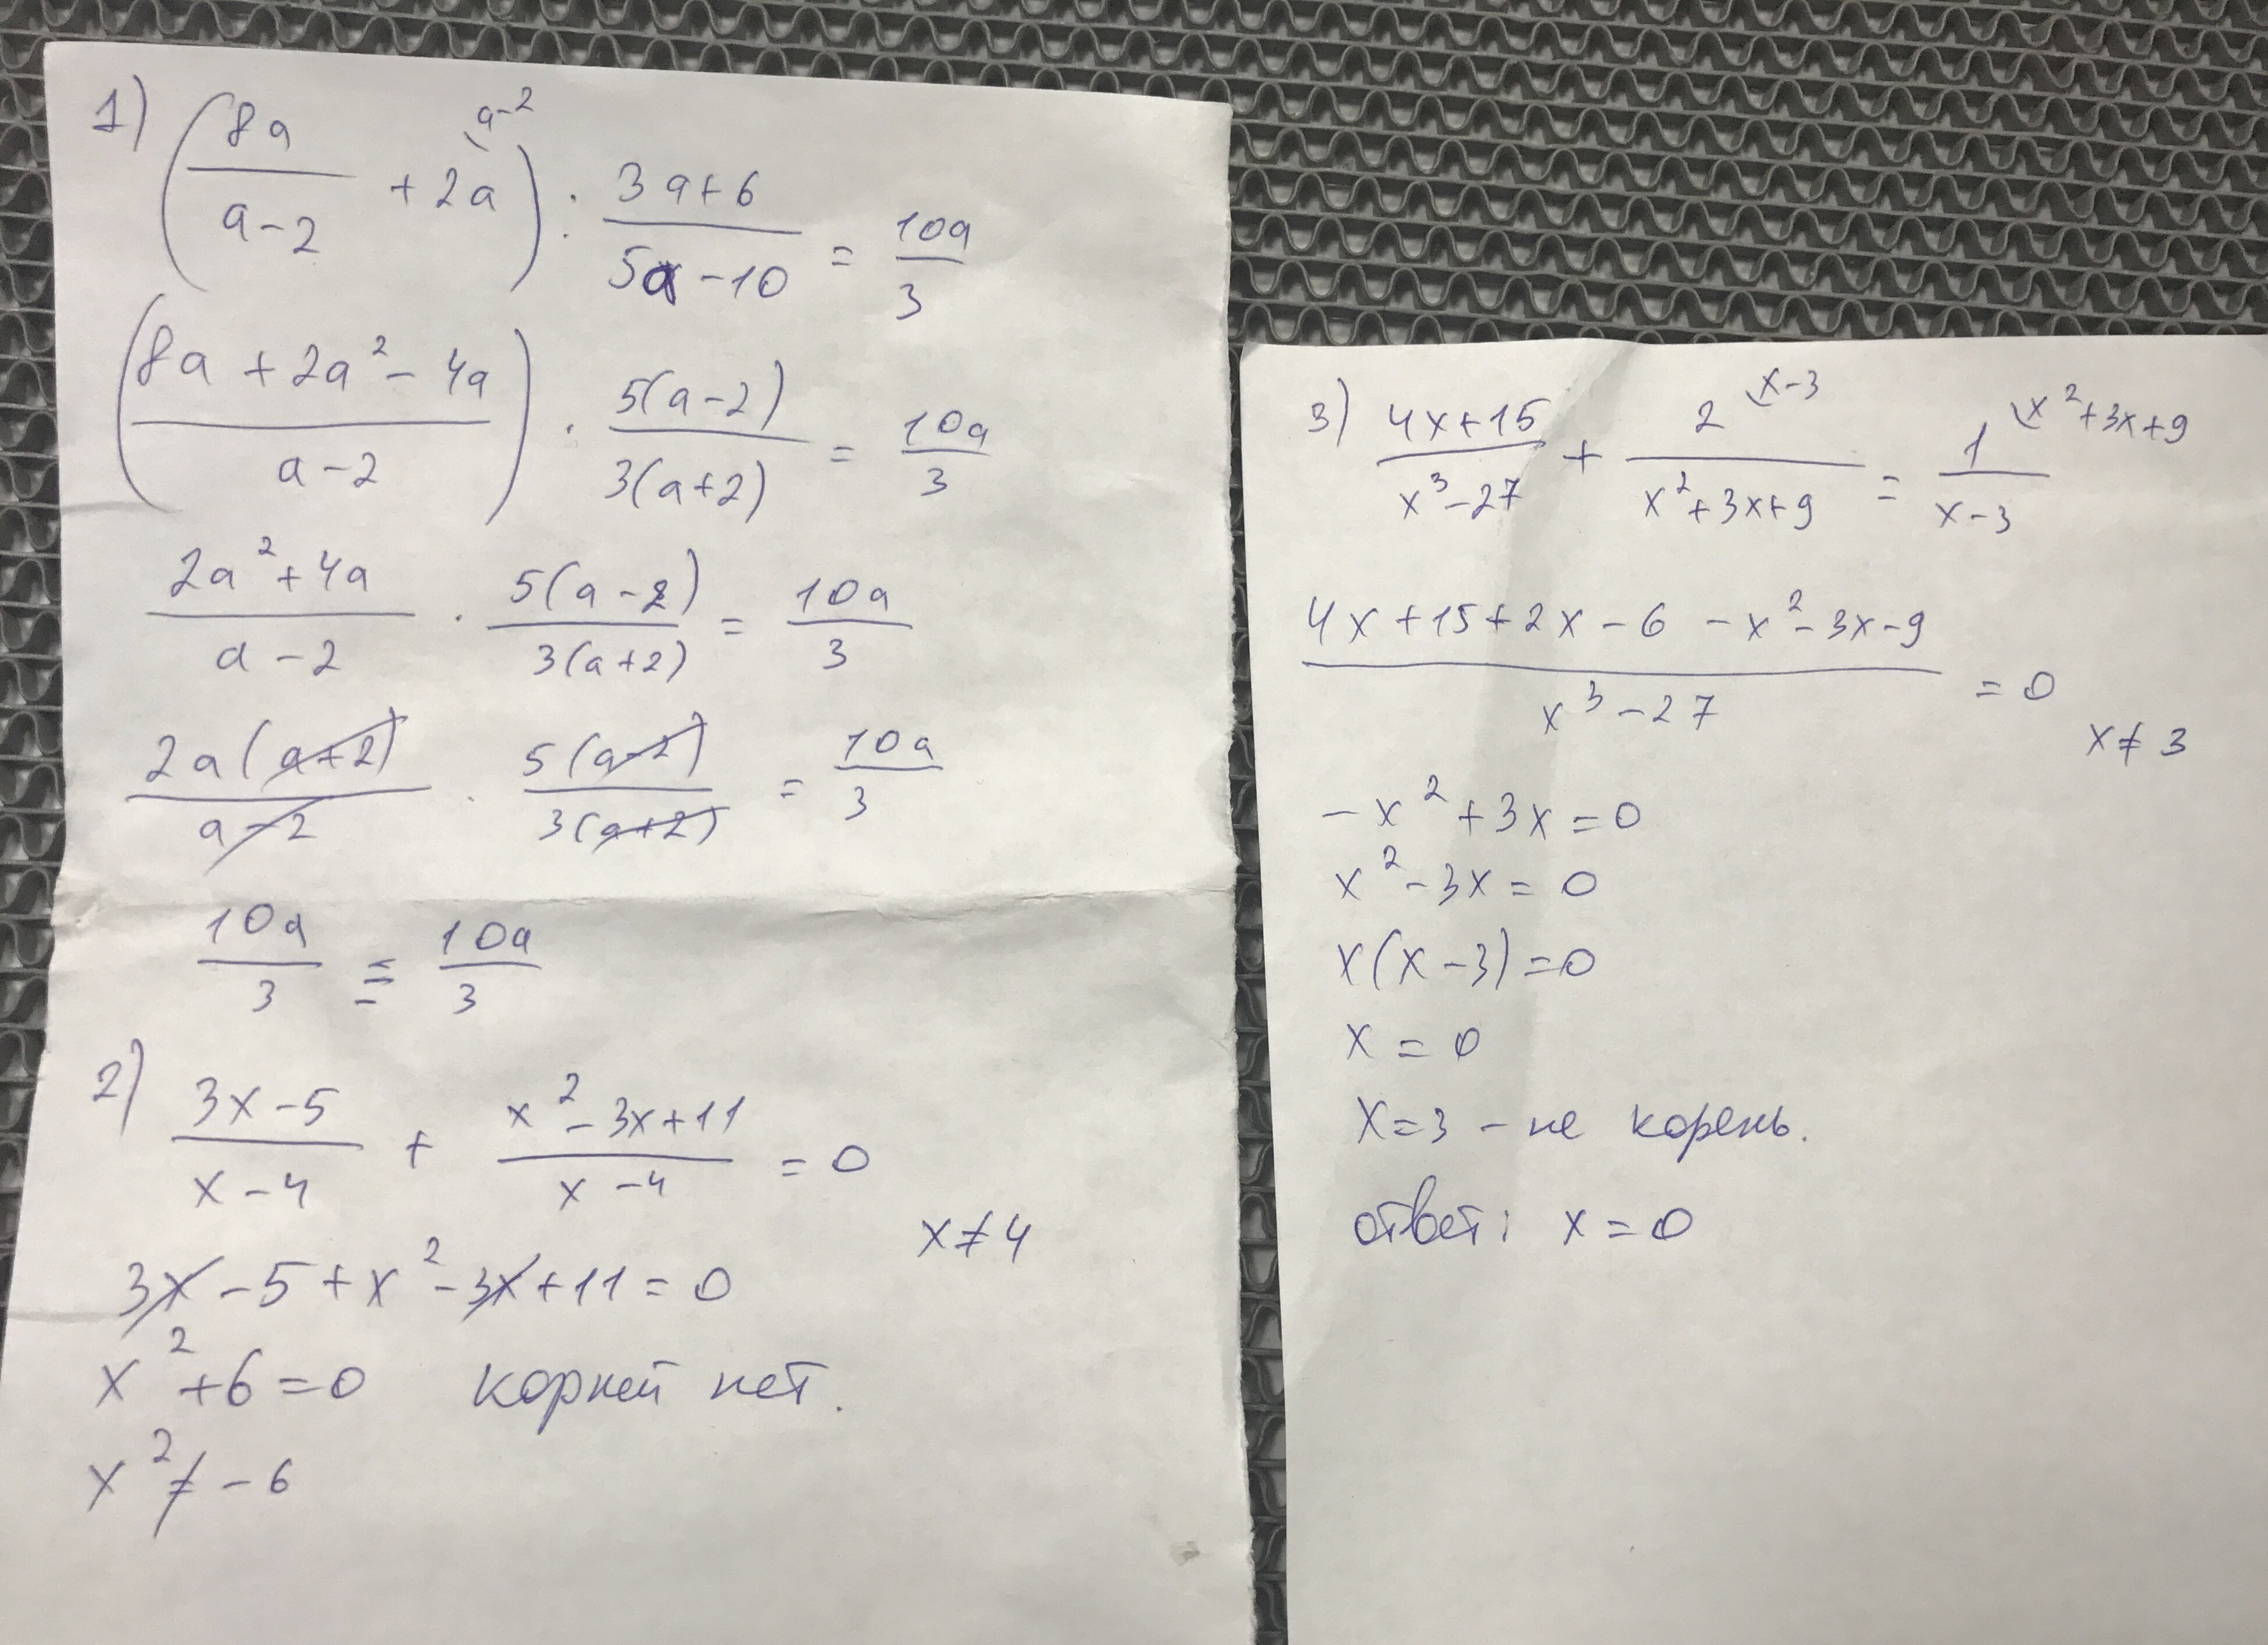 1) (8a/(a-2) + 2a^(\a-2)) : (3a+6)/(5a-10) = 10a/3
((8a+2a²-4a)/(a-2)) · 5(a-2)/(3(a+2)) = 10a/3
(2a²+4a)/(a-2) · 5(a-2)/(3(a+2)) = 10a/3
2a(a+2)/(a-2) · 5(a-2)/(3(a+2)) = 10a/3
10a/3 ≡ 10a/3
2) (3x-5)/(x-4) + (x²-3x+11)/(x-4) = 0
x≠4
3x-5+x²-3x+11=0
x²+6=0 корней нет.
x²≠-6
3) (4x+15)/(x³-27) + 2^(\x-3)/(x²+3x+9) = 1^(\x²+3x+9)/(x-3)
(4x+15+2x-6-x²-3x-9)/(x³-27) = 0
x≠3
-x²+3x=0
x²-3x=0
x(x-3)=0
x=0
x=3 - не корень.
ответ: x=0